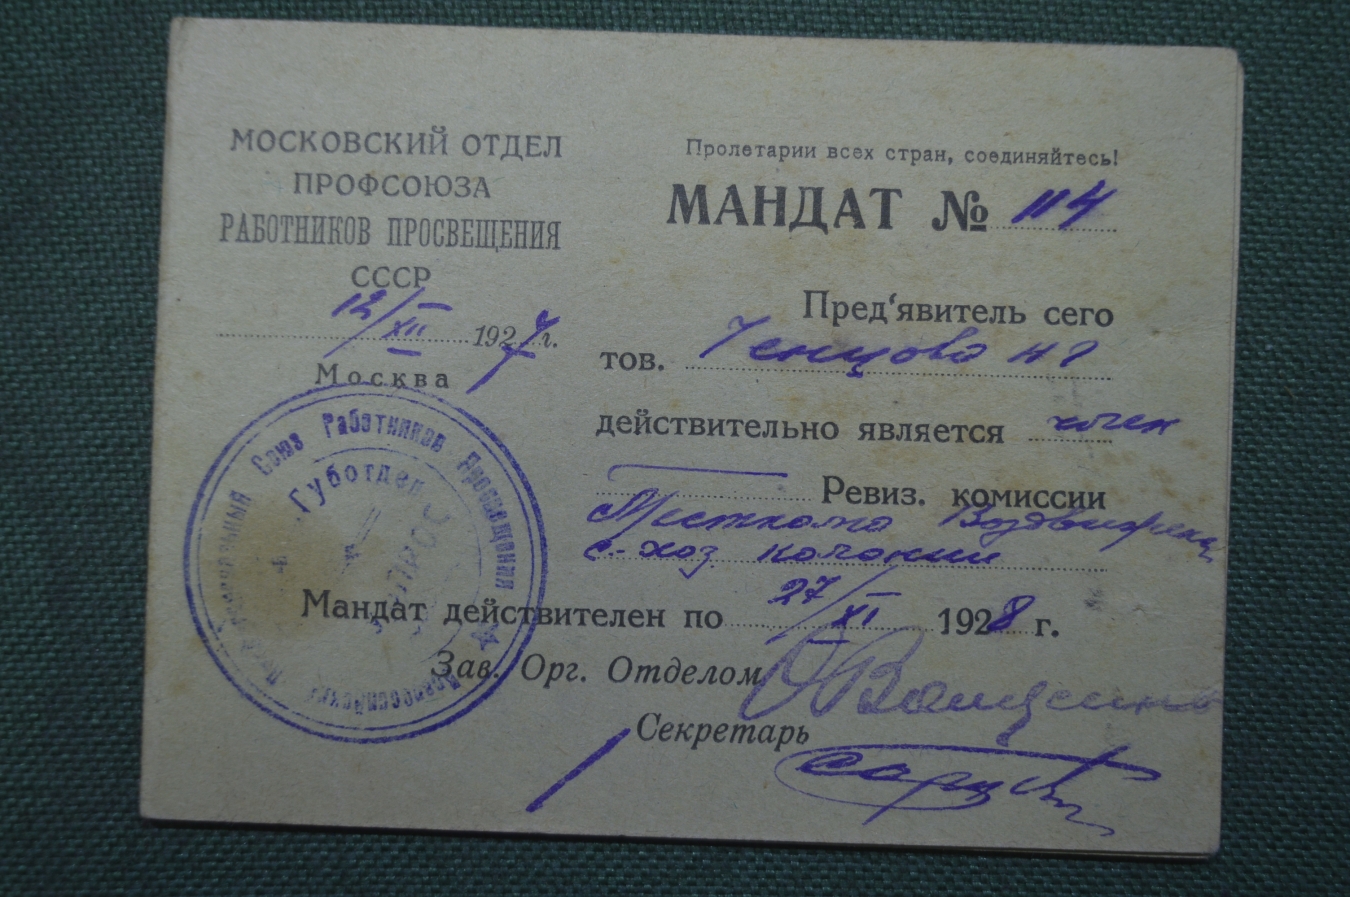 МОСКОВСКИЙ ОТДЕЛ
ПРОФСОЮЗА
РАБОТНИКОВ ПРОСВЕЩЕНИЯ
СССР
12/XII 1927 г.
Москва
Пролетарии всех стран, соединяйтесь!
МАНДАТ № 114
Пред'явитель сего
тов. Ченцова
действительно является член
Ревиз. комиссии
Месткома Воздвиженск
с-хоз колонии
Мандат действителен по 27/XI 1928 г.
Зав. Орг. Отделом
Секретарь
Союз Работников Просвещения
Губотдел